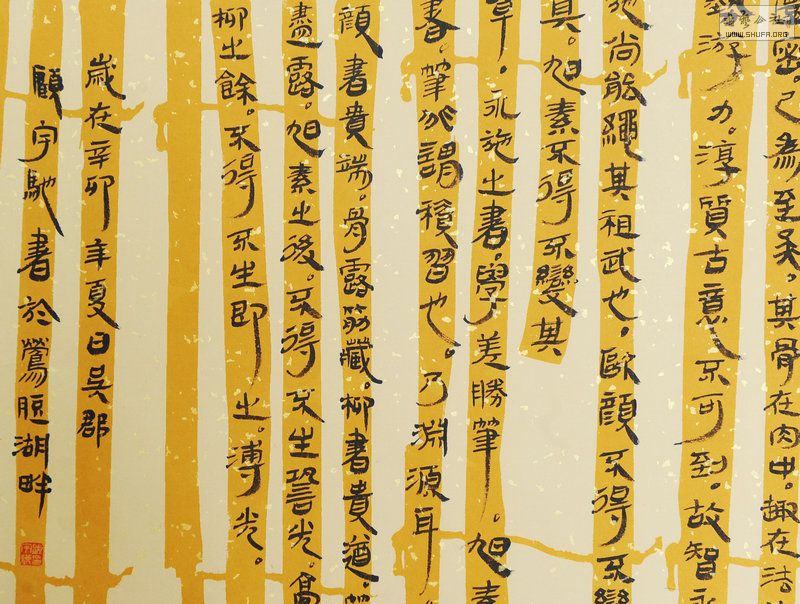 密。已为至矣。其骨在肉中。趣在法
游力。淳质古意不可到。故智永
尚能繩其祖武也。歐顏不得不變
真。旭素不得不變其
草。永施之書。學差勝筆。旭素
書。筆所謂積習也。乃淵源耳
顏書貴端。骨露筋藏。柳書貴遒
盡露。旭素之後。不得不生
柳之餘。不得不生即之。溥光。
歲在辛卯年夏日吳郡
顧宇馳書於鶯脰湖畔
WWW.SHUFA.ORG